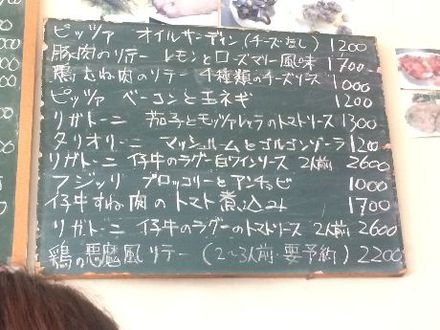 ピッツァ オイルサーディン(チーズなし) 1200
豚肉のソテー レモンとローズマリー風味 1700
鶏むね肉のソテー 4種類のチーズソース 1000
ピッツァ ベーコンと玉ネギ 1200
リガトーニ 茄子とモッツァレッラのトマトソース 1300
タリオリーニ マッシュルームとゴルゴンゾーラ 1200
リガトーニ 仔牛のラグー白ワインソース 2人前 2600
フジッリ ブロッコリーとアンチョビ 1000
仔牛すね肉のトマト煮込み 1700
リガトーニ 仔牛のラグーのトマトソース 2人前 2600
鶏の悪魔風ソテー (2~3人前・要予約) 2200